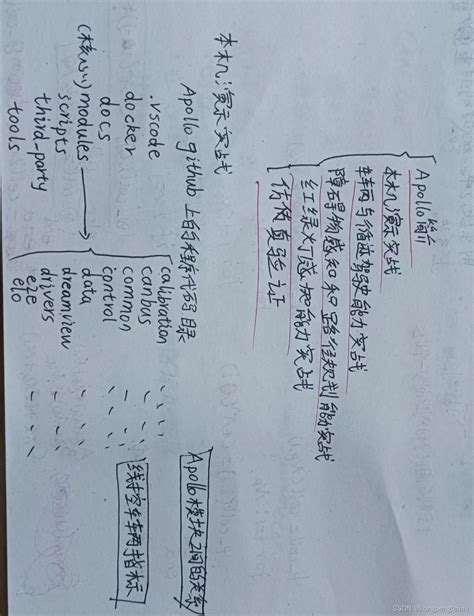 Apollo简介
本机演示实战
车辆与循迹驾驶能力实战
障碍物感知和路径规划能力实战
红绿灯感知能力实战
仿真验证
本机演示实战
Apollo github 上的程序代码目录
.vscode
docker
docs
(核心) modules
scripts
third_party
tools
calibration
canbus
common
control
data
dreamview
drivers
Apollo模块之间的关系
线控车辆指标
CSDN